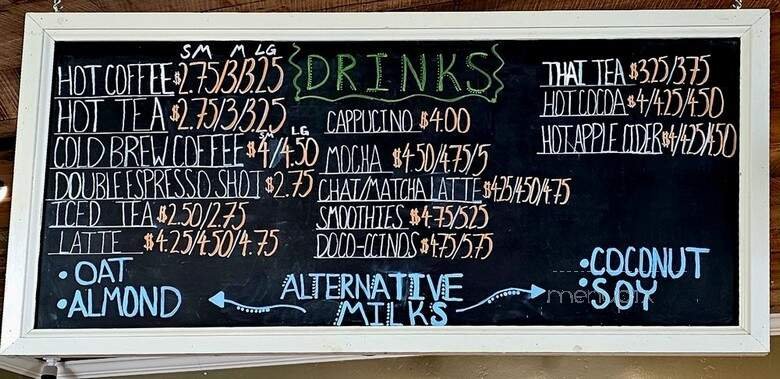 SM M LG
HOT COFFEE $2.75/3/3.25
HOT TEA $2.75/3/3.25
SM LG
COLD BREW COFFEE $4/4.50
DOUBLE ESPRESSO SHOT $2.75
ICED TEA $2.50/2.75
LATTE $4.25/4.50/4.75
DRINKS
CAPPUCINO $4.00
MOCHA $4.50/4.75/5
CHAI/MATCHA LATTE $4.25/4.50/4.75
SMOOTHIES $4.75/5.25
DOCO-CCINOS $4.75/5.75
THAI TEA $3.25/3.75
HOT COCOA $4/4.25/4.50
HOT APPLE CIDER $4/4.25/4.50
• OAT
• ALMOND
ALTERNATIVE
MILKS
• COCONUT
• SOY